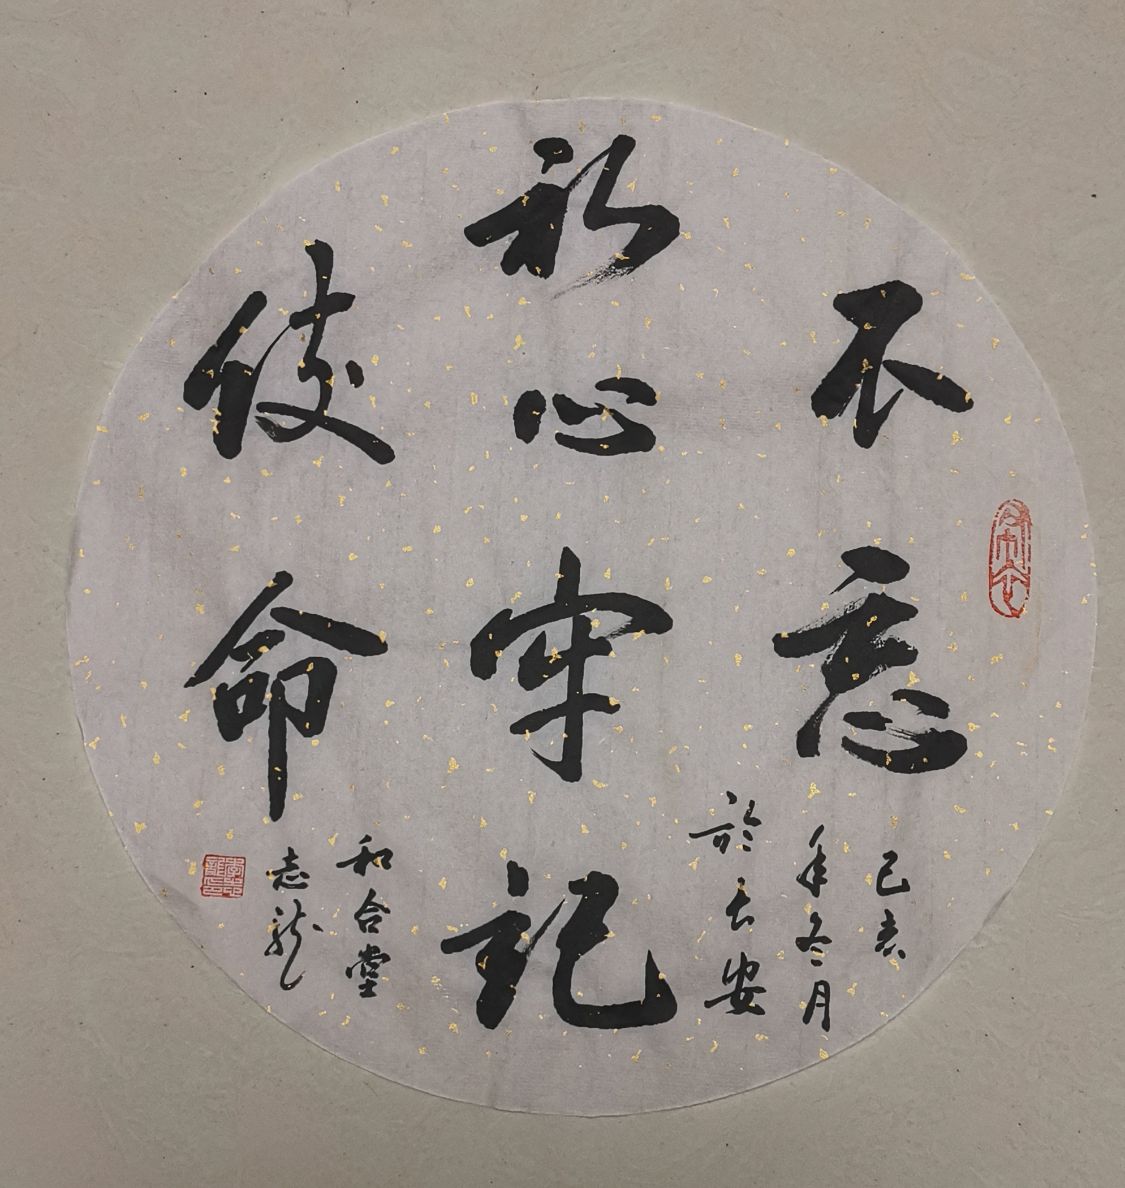 不忘
初心牢记
使命
己亥
年冬月
於长安
和合堂
志龙